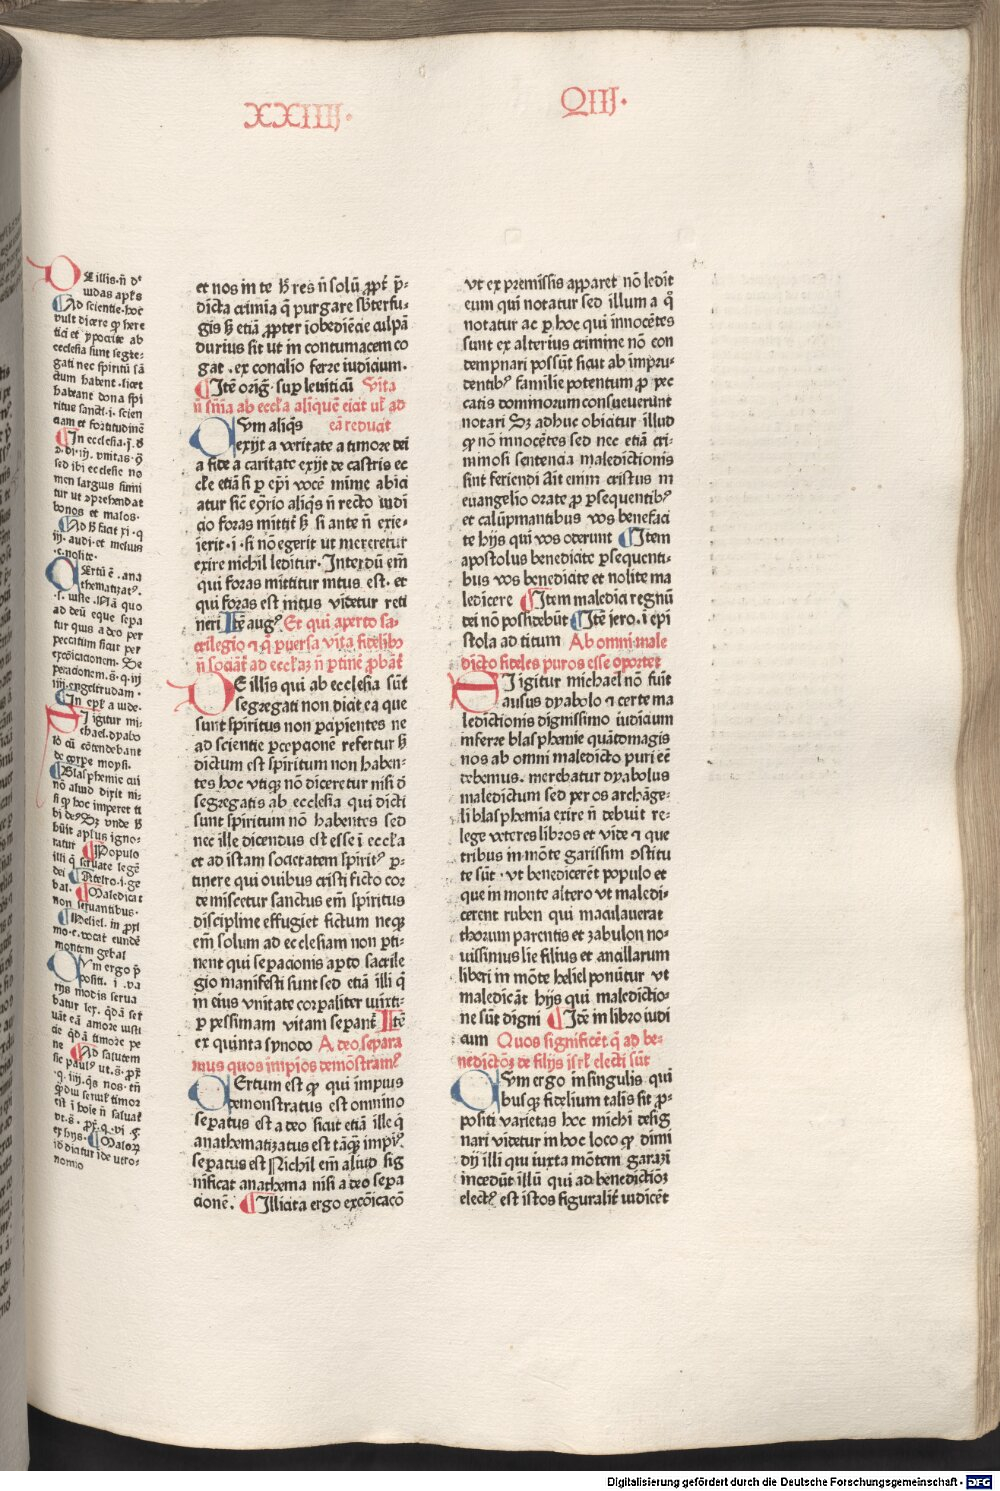 XXIIIJ.
QIIJ.
E illis. n̄ dͤ
iudas apl̓s
Ad scientie. hoc
vult dicere ꝙ here
tici et ypocrite ab
ecclesia sunt segre-
gati nec spiritū sā
ctum habent. licet
habeant dona spi
ritus sancti. i. scien
ciam et fortitudinē
In ecclesia. j. d̄
sed ibi ecclesie no
men largius sumi
tur ut cōprehendat
bonos et malos.
Ad h̄ facit xi. q
iij. audi. et melius
.c. nolite.
Ertū ē. ana
thematizatꝰ.
.s. iuste. Nā quo
ad deū eque sepa
tur quis a deo per
peccatum sicut per
excōicacionem. De
peracionem. s̄. q. iij
iij. engeltrudam.
In epl̓a iude.
I igitur mi-
chael. dyabo
lo cū cōtendebant
de corpe moysi.
Blasphemie cui
nō aliud dixit ni-
si ꝙ hoc imperet ti
bi deꝰ Sꝫ vnde h̄
buit aplus igno-
ratur Populo
illi q̄ seruate legē
dei Altero. i. ge
bal. Maledicat
non seruantibus.
Heliel. in p̄xi
mo. c. vocat eundē
montem gebal
Vm ergo p̄
positi. i. va
rijs modis serua
batur lex. q̄dā ser
uāt eā amore iusti
cie q̄dā timore pe
ne Ad salutem
sic paulꝰ ut. s̄. p̄x̄
.q. iiij. q̄s nos. tn̄
ꝙ diu seruil̓ timor
est ī hoīe n̄ saluat̓
Maloꝝ
id diatur īde utro-
nomio
et nos in te h̄ res n̄ solū ꝓpt̓ p̄-
dicta crimīa q̄ purgare sb̓terfu-
gis h̄ etiā ꝓpter īobediēcie culpā
durius sit ut in contumacem co
gat. ex concilio ferre iudicium.
Itē orig̓. suꝑ leuiticū Vita
n̄ sn̄ia ab eccl̓a aliquē eiat ul̓ ad
Vm aliq̄s eā reducat
exijt a veritate a timore dei
a fide a caritate exijt de castris ec
cl̓e etiā si ꝑ ep̄i vocē mīme abici
atur sic̄ ecōrio aliq̄s n̄ recto iudi
cio foras mittit̓ h̄ si ante n̄ exie-
ierit. i. si nō egerit ut mereretur
exire nichil leditur. Interdū em̄
qui foras mittitur intus est. et
qui foras est intus videtur reti
neri Itē augꝰ Et qui aperto sa-
crilegio ⁊ q̄ ꝑuersa vita fidelibꝫ
n̄ sociāt̓ ad eccl̓aꝫ n̄ ꝑtinē ꝓbāt̓
E illis qui ab ecclesia sūt
segregati non dicat ea que
sunt spiritus non ꝑcipientes ne
ad scientie ꝑcepcionē refertur h̄
dictum est spiritum non haben-
tes hoc vtiqꝫ nō diceretur nisi d̄
segregatis ab ecclesia qui dicti
sunt spiritum nō habentes sed
nec ille dicendus est esse ī eccl̓a
et ad istam societatem spiritꝰ ꝑ-
tinere qui ouibus cristi ficto cor
de miscetur sanctus em̄ spiritus
discipline effugiet fictum neqꝫ
em̄ solum ad ecclesiam non ꝑti-
nent qui sepacionis aꝑto sacrile
gio manifesti sunt sed etiā illi q̄
in eius vnitate corꝑaliter iuixti-
ꝑ pessimam vitam sepant̓ Itē
ex quinta synodo A deo separa
mus quos impios demōstramꝰ
Ertum est ꝙ qui impius
demonstratus est omnino
sepatus est a deo sicut etiā ille q̄
anathematizatus est tāqꝫ impiꝰ
sepatus est Nichil em̄ aliud sig
nificat anathema nisi a deo sepa
cionē. Illicita ergo excōicacō
vt ex premissis apparet nō ledit
eum qui notatur sed illum a q̄
notatur ac ꝑ hoc qui innocētes
sunt ex alterius crimine nō con
dempnari possūt sicut ab impru-
dentibꝰ familie potentum ꝓ pec
catis dominorum consueuerunt
notari Sꝫ adhuc obicitur illud
ꝙ nō innocētes sed nec etiā cri-
minosi sentencia maledictionis
sint feriendi Ait enim cristus in
euangelio orate ꝓ ꝑsequentibꝰ
et calūpmantibus vos benefaci
te hijs qui vos oderunt Item
apostolus benedicite ꝑsequenti-
bus vos benedicite et nolite ma
ledicere Item maledici regnū
dei nō possidebūt Itē jero. ī epi
stola ad titum Ab omni male
dicto fideles puros esse oportet
I igitur michael nō fuit
ausus dyabolo ⁊ certe ma
ledictionis dignissimo iudicium
inferre blasphemie quātomagis
nos ab omni maledicto puri eē
debemus. merebatur dyabolus
maledictum sed per os archāge-
li blasphemia exire n̄ debuit re-
lege veteres libros et vide ⁊ que
tribus in mōte garissim ꝯstitu
te sūt. vt benedicerēt populo et
que in monte altero vt maledi-
cerent ruben qui maculauerat
thorum parentis et zabulon no-
uissimus lie filius et ancillarum
liberi in mōte heliel ponūtur vt
maledicāt hijs qui maledictio-
ne sūt digni Itē in libro iudi
cum Quos significēt q̄ ad be-
nedictōꝫ de filijs isrl̓ electi sūt
Vm ergo in singulis qui
busqꝫ fidelium talis fit ꝓ-
positi varietas hoc michi desig
nari videtur in hoc loco ꝙ dimi
dij illi qui iuxta mōtem garazi
incedūt illū qui ad benedictiōꝫ
electꝰ est istos figuralit̓ iudicēt
Digitalisierung gefördert durch die Deutsche Forschungsgemeinschaft - DFG